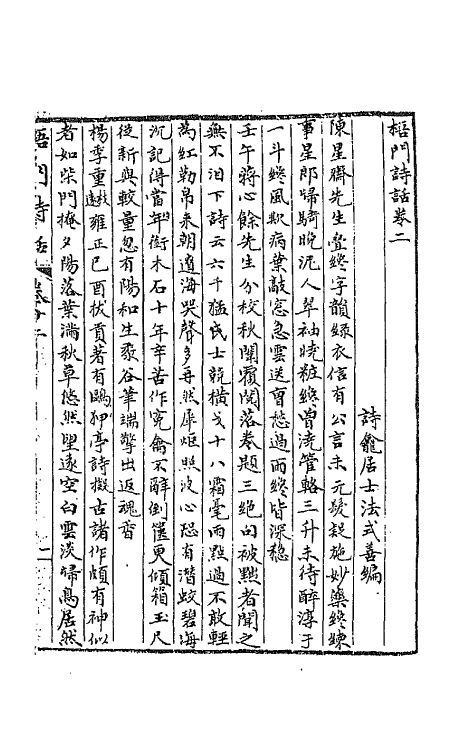 梧門詩話卷二
詩龕居士法式善編
陳星齋先生疊終字韻綠衣信有公言未元髮疑施妙藥終練
事星郎歸騎晚泥人翠袖燒粧終曾澆管輅三升未待醉淳于
一斗終風欺病葉敲窓急雲送曾愁過雨終皆深穩
壬午蔣心餘先生分校秋闈覆閱落卷題三絕句被黜者聞之
無不泪下詩云六千猛氏士競橫戈十八霜毫雨點過不敢輕
為紅勒帛來朝邊海哭聲多再然犀炬照波心恐有潛蛟碧海
沉記得當年銜木石十年辛苦作寃禽不辭倒篋更傾箱玉尺
從新與較量忽有陽和生黍谷筆端擎出返魂香
楊李重遠雍正己酉拔貢著有鷗狎亭詩擬古諸作頗有神似
者如柴門掩夕陽落葉滿秋草悠然望遠空白雲淡歸鳥居然
梧門詩話 卷之二 一